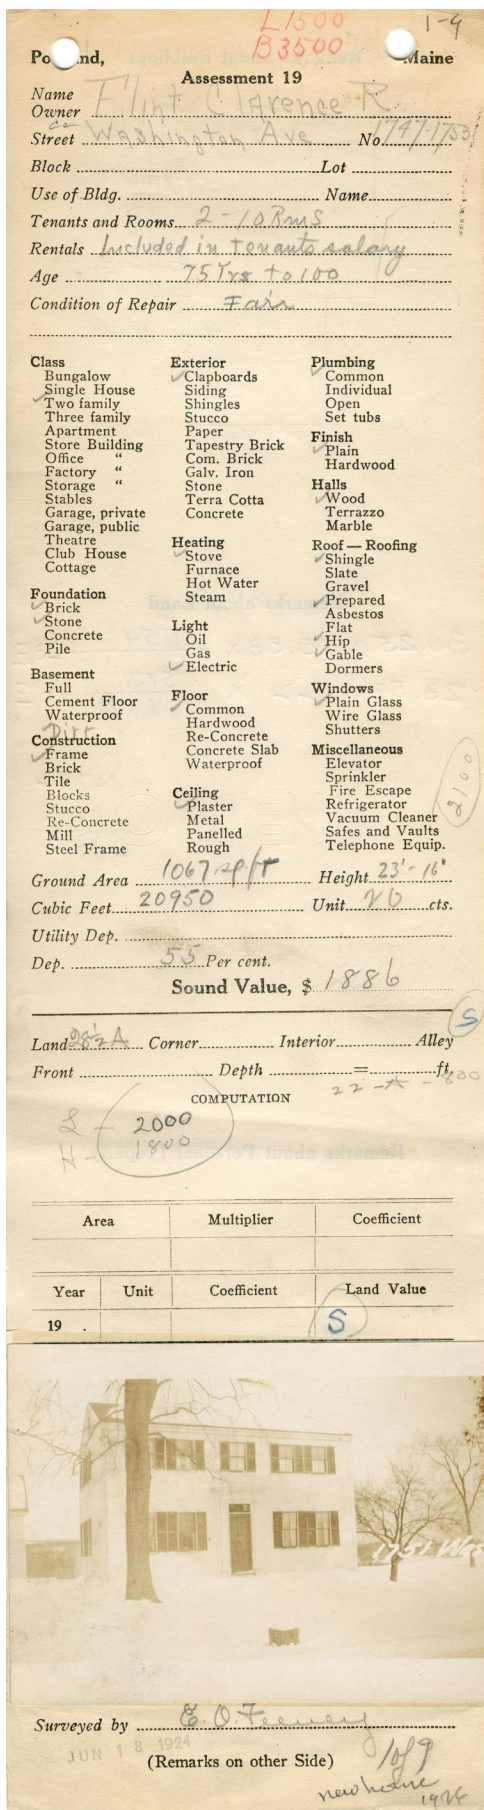 L1500
B3500
1-9
Po nd, Maine
Assessment 19
Name
Owner Flint Clarence R.
Street Washington Ave No. 1747-1753
Block Lot
Use of Bldg. Name
Tenants and Rooms 2-10 Rms
Rentals Included in tenants salary
Age 75 Yrs to 100
Condition of Repair Fair
Class
Bungalow
Single House
Two family
Three family
Apartment
Store Building
Office "
Factory "
Storage "
Stables
Garage, private
Garage, public
Theatre
Club House
Cottage
Foundation
Brick
Stone
Concrete
Pile
Basement
Full
Cement Floor
Waterproof
Dirt
Construction
Frame
Brick
Tile
Blocks
Stucco
Re-Concrete
Mill
Steel Frame
Exterior
Clapboards
Siding
Shingles
Stucco
Paper
Tapestry Brick
Com. Brick
Galv. Iron
Stone
Terra Cotta
Concrete
Heating
Stove
Furnace
Hot Water
Steam
Light
Oil
Gas
Electric
Floor
Common
Hardwood
Re-Concrete
Concrete Slab
Waterproof
Ceiling
Plaster
Metal
Panelled
Rough
Plumbing
Common
Individual
Open
Set tubs
Finish
Plain
Hardwood
Halls
Wood
Terrazzo
Marble
Roof — Roofing
Shingle
Slate
Gravel
Prepared
Asbestos
Flat
Hip
Gable
Dormers
Windows
Plain Glass
Wire Glass
Shutters
Miscellaneous
Elevator
Sprinkler
Fire Escape
Refrigerator
Vacuum Cleaner
Safes and Vaults
Telephone Equip.
2100
Ground Area 1067 sq ft Height 23'-16'
Cubic Feet 20950 Unit 20 cts.
Utility Dep.
Dep. 55 Per cent.
Sound Value, $ 1886
S
Land 28½ A Corner Interior Alley
Front Depth = ft.
22-A-800
COMPUTATION
L - 2000
H - 1800
Area Multiplier Coefficient
Year Unit Coefficient Land Value
19 .
S
1751 Was
Surveyed by E. O. Feeney
JUN 18 1924
(Remarks on other Side)
1 of 9
new home
1926